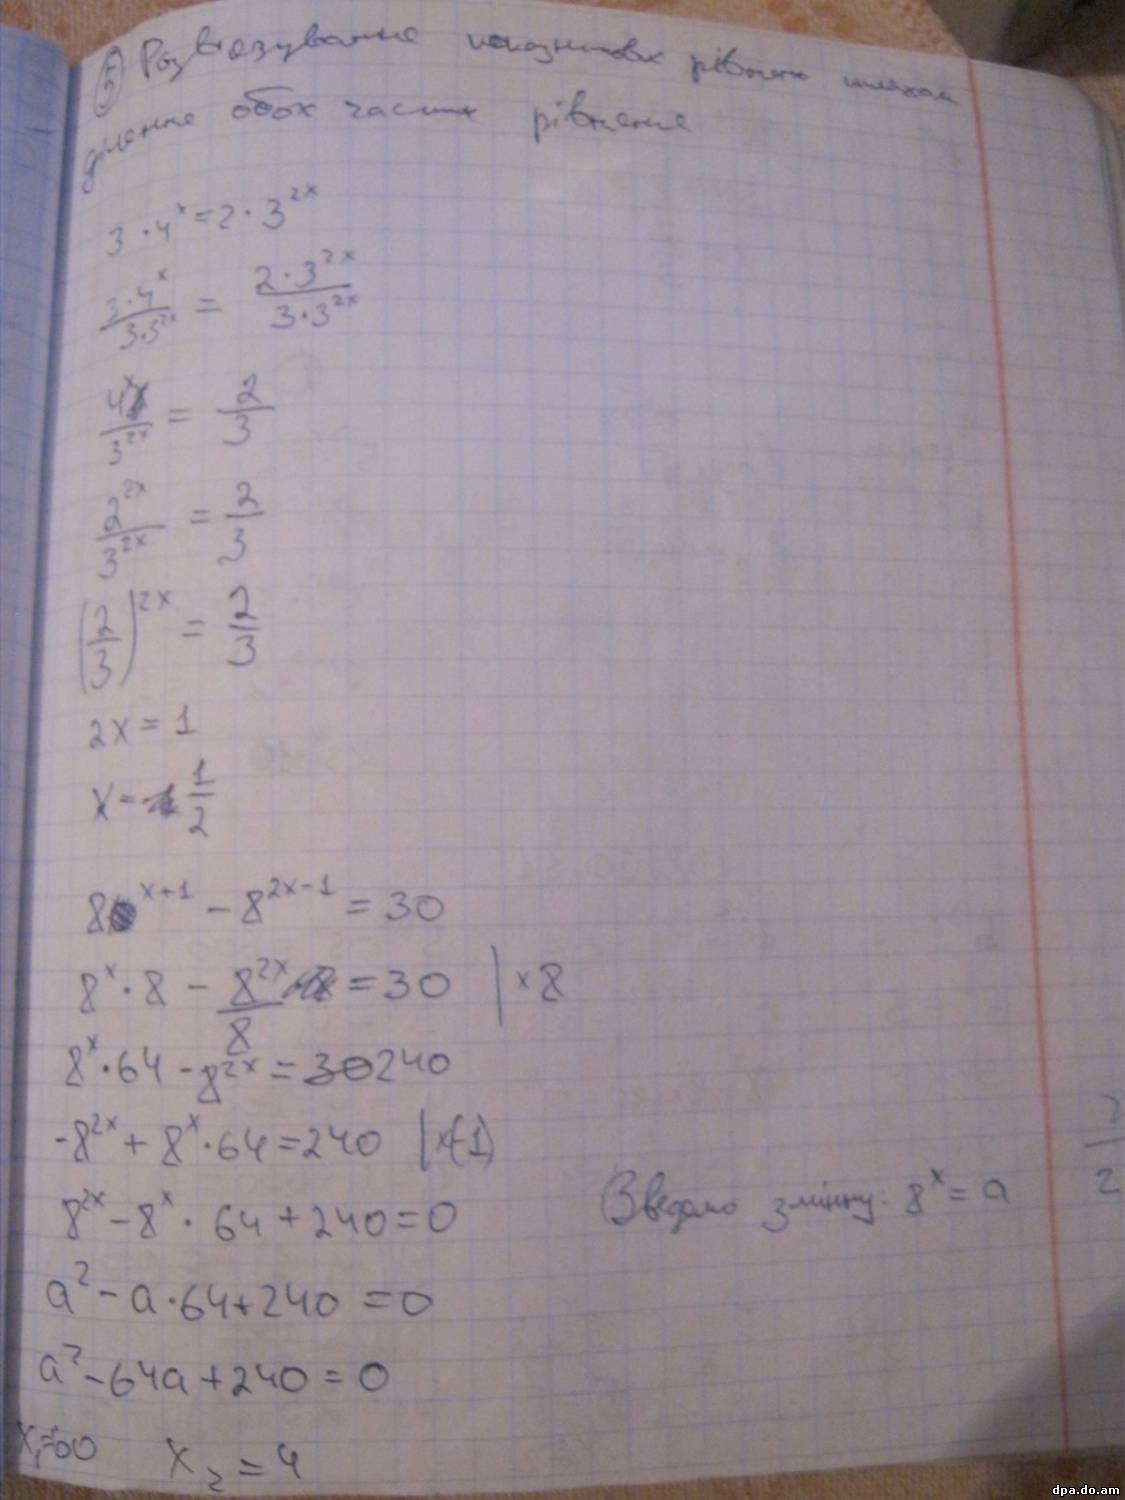 ⑤ Розв'язування показникових рівнянь шляхом
ділення обох частин рівняння
3 · 4^x = 2 · 3^{2x}
\frac{3·4^x}{3·3^{2x}} = \frac{2·3^{2x}}{3·3^{2x}}
\frac{4^x}{3^{2x}} = \frac{2}{3}
\frac{2^{2x}}{3^{2x}} = \frac{2}{3}
(\frac{2}{3})^{2x} = \frac{2}{3}
2x = 1
x = \frac{1}{2}
8^{x+1} - 8^{2x-1} = 30
8^x · 8 - \frac{8^{2x}}{8} = 30 | × 8
8^x · 64 - 8^{2x} = 30 240
-8^{2x} + 8^x · 64 = 240 | ×(-1)
8^{2x} - 8^x · 64 + 240 = 0 Введемо змінну: 8^x = a
a^2 - a · 64 + 240 = 0
a^2 - 64a + 240 = 0
x_1 = 60 x_2 = 4
dpa.do.am